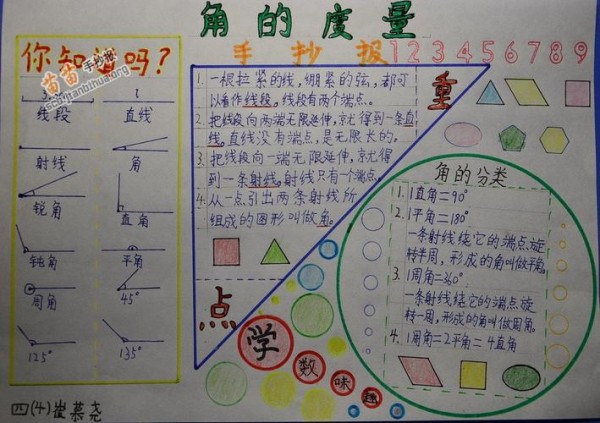 角的度量
手抄报 1 2 3 4 5 6 7 8 9
你知道吗?
苗苗手抄报
shijianbihua.org
线段 直线
射线 角
锐角 直角
钝角 平角
周角 45°
125° 135°
1. 一根拉紧的线，绷紧的弦，都可
以看作线段。线段有两个端点。
2. 把线段向两端无限延伸，就得到一条直
线。直线没有端点，是无限长的。
3. 把线段向一端无限延伸，就得
到一条射线。射线只有一个端点。
4. 从一点引出两条射线所
组成的图形叫做角。
重
点
角的分类
1. 1直角=90°
2. 1平角=180°
一条射线绕它的端点旋
转半周，形成的角叫做平角。
3. 1周角=360°
一条射线绕它的端点旋
转一周，形成的角叫做周角。
4. 1周角=2平角=4直角
学
数
味
趣
四(4)崔慕尧